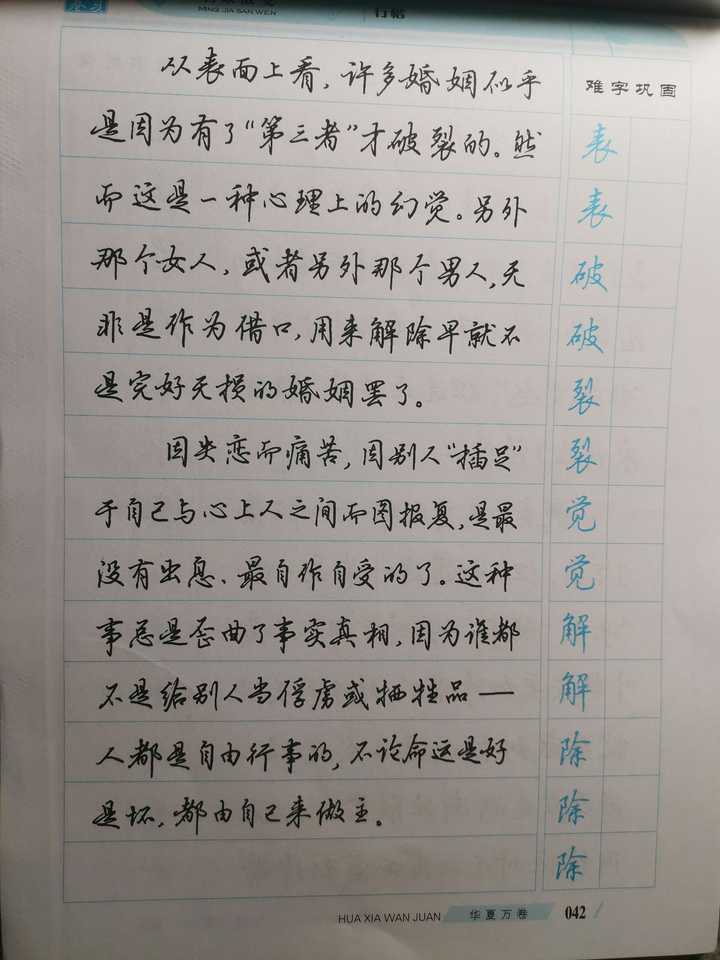 MING JIA SAN WEN
行楷
从表面上看，许多婚姻似乎
是因为有了“第三者”才破裂的。然
而这是一种心理上的幻觉。另外
那个女人，或者另外那个男人，无
非是作为借口，用来解除早就不
是完好无损的婚姻罢了。
因失恋而痛苦，因别人“插足”
于自己与心上人之间而图报复，是最
没有出息、最自作自受的了。这种
事总是歪曲了事实真相，因为谁都
不是给别人当俘虏或牺牲品——
人都是自由行事的，不论命运是好
是坏，都由自己来做主。
难字巩固
表
表
破
破
裂
裂
觉
觉
解
解
除
除
除
HUA XIA WAN JUAN
华夏万卷
042